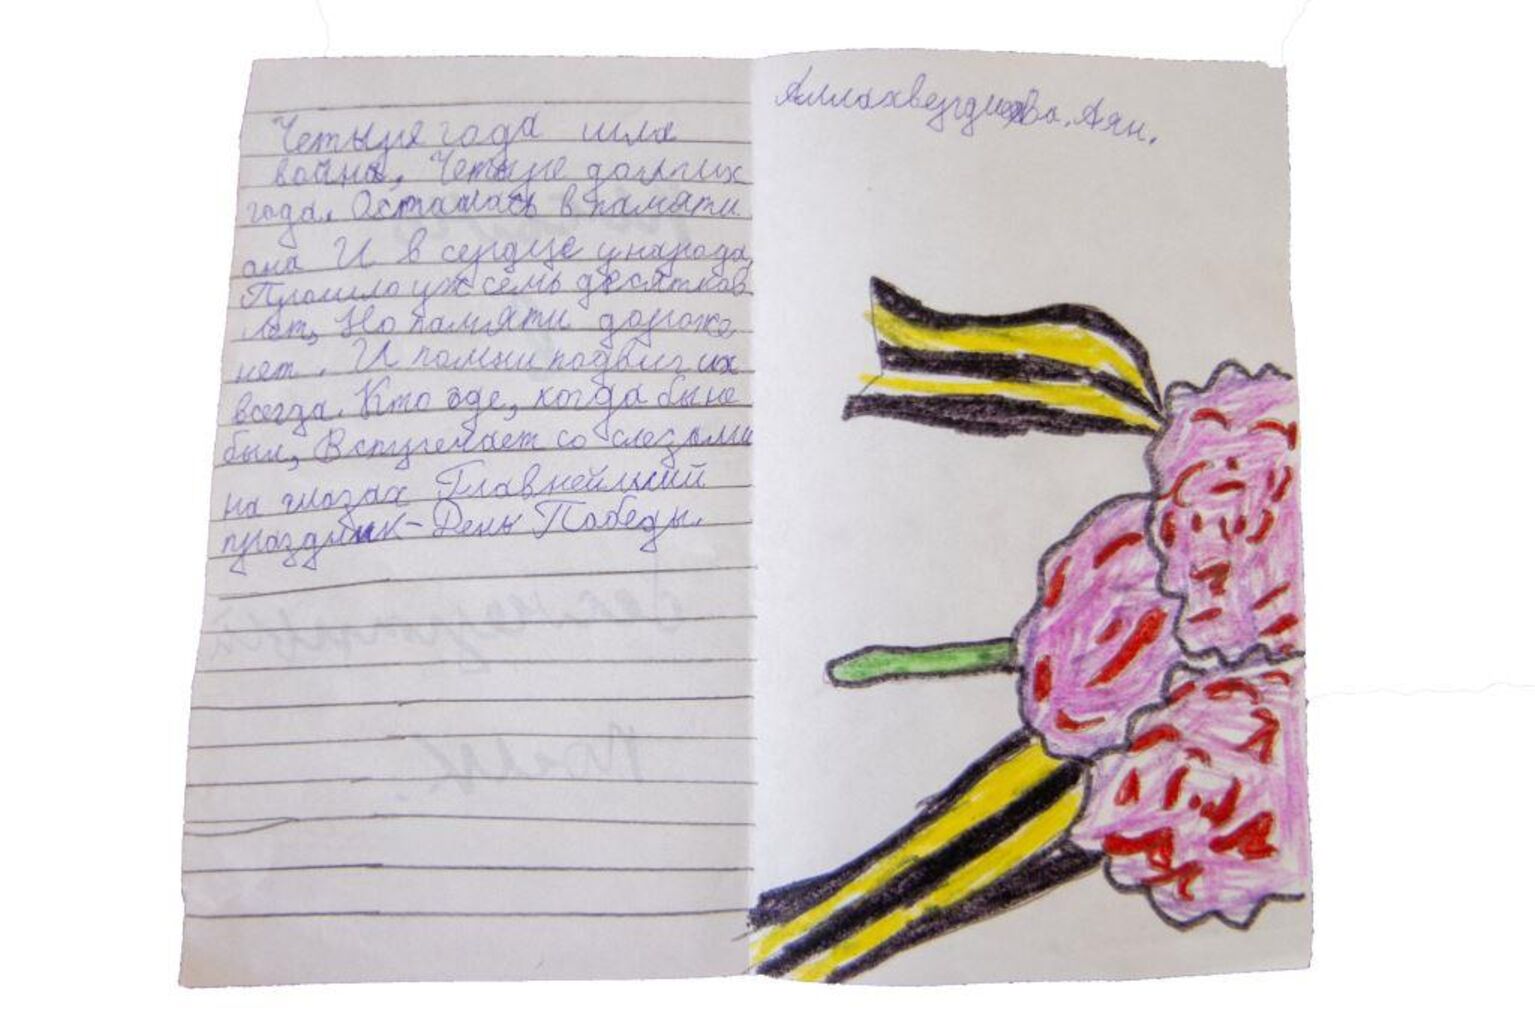 Четыре года шла
война, Четыре долгих
года. Осталась в памяти
она И в сердце у народа,
Прошло уж семь десятков
лет, Но памяти дороже
нет. И помни подвиг их
всегда. Кто где, когда бы не
был, Встречает со слезами
на глазах Главнейший
праздник - День Победы.
Аян.
Бессмертный
полк.